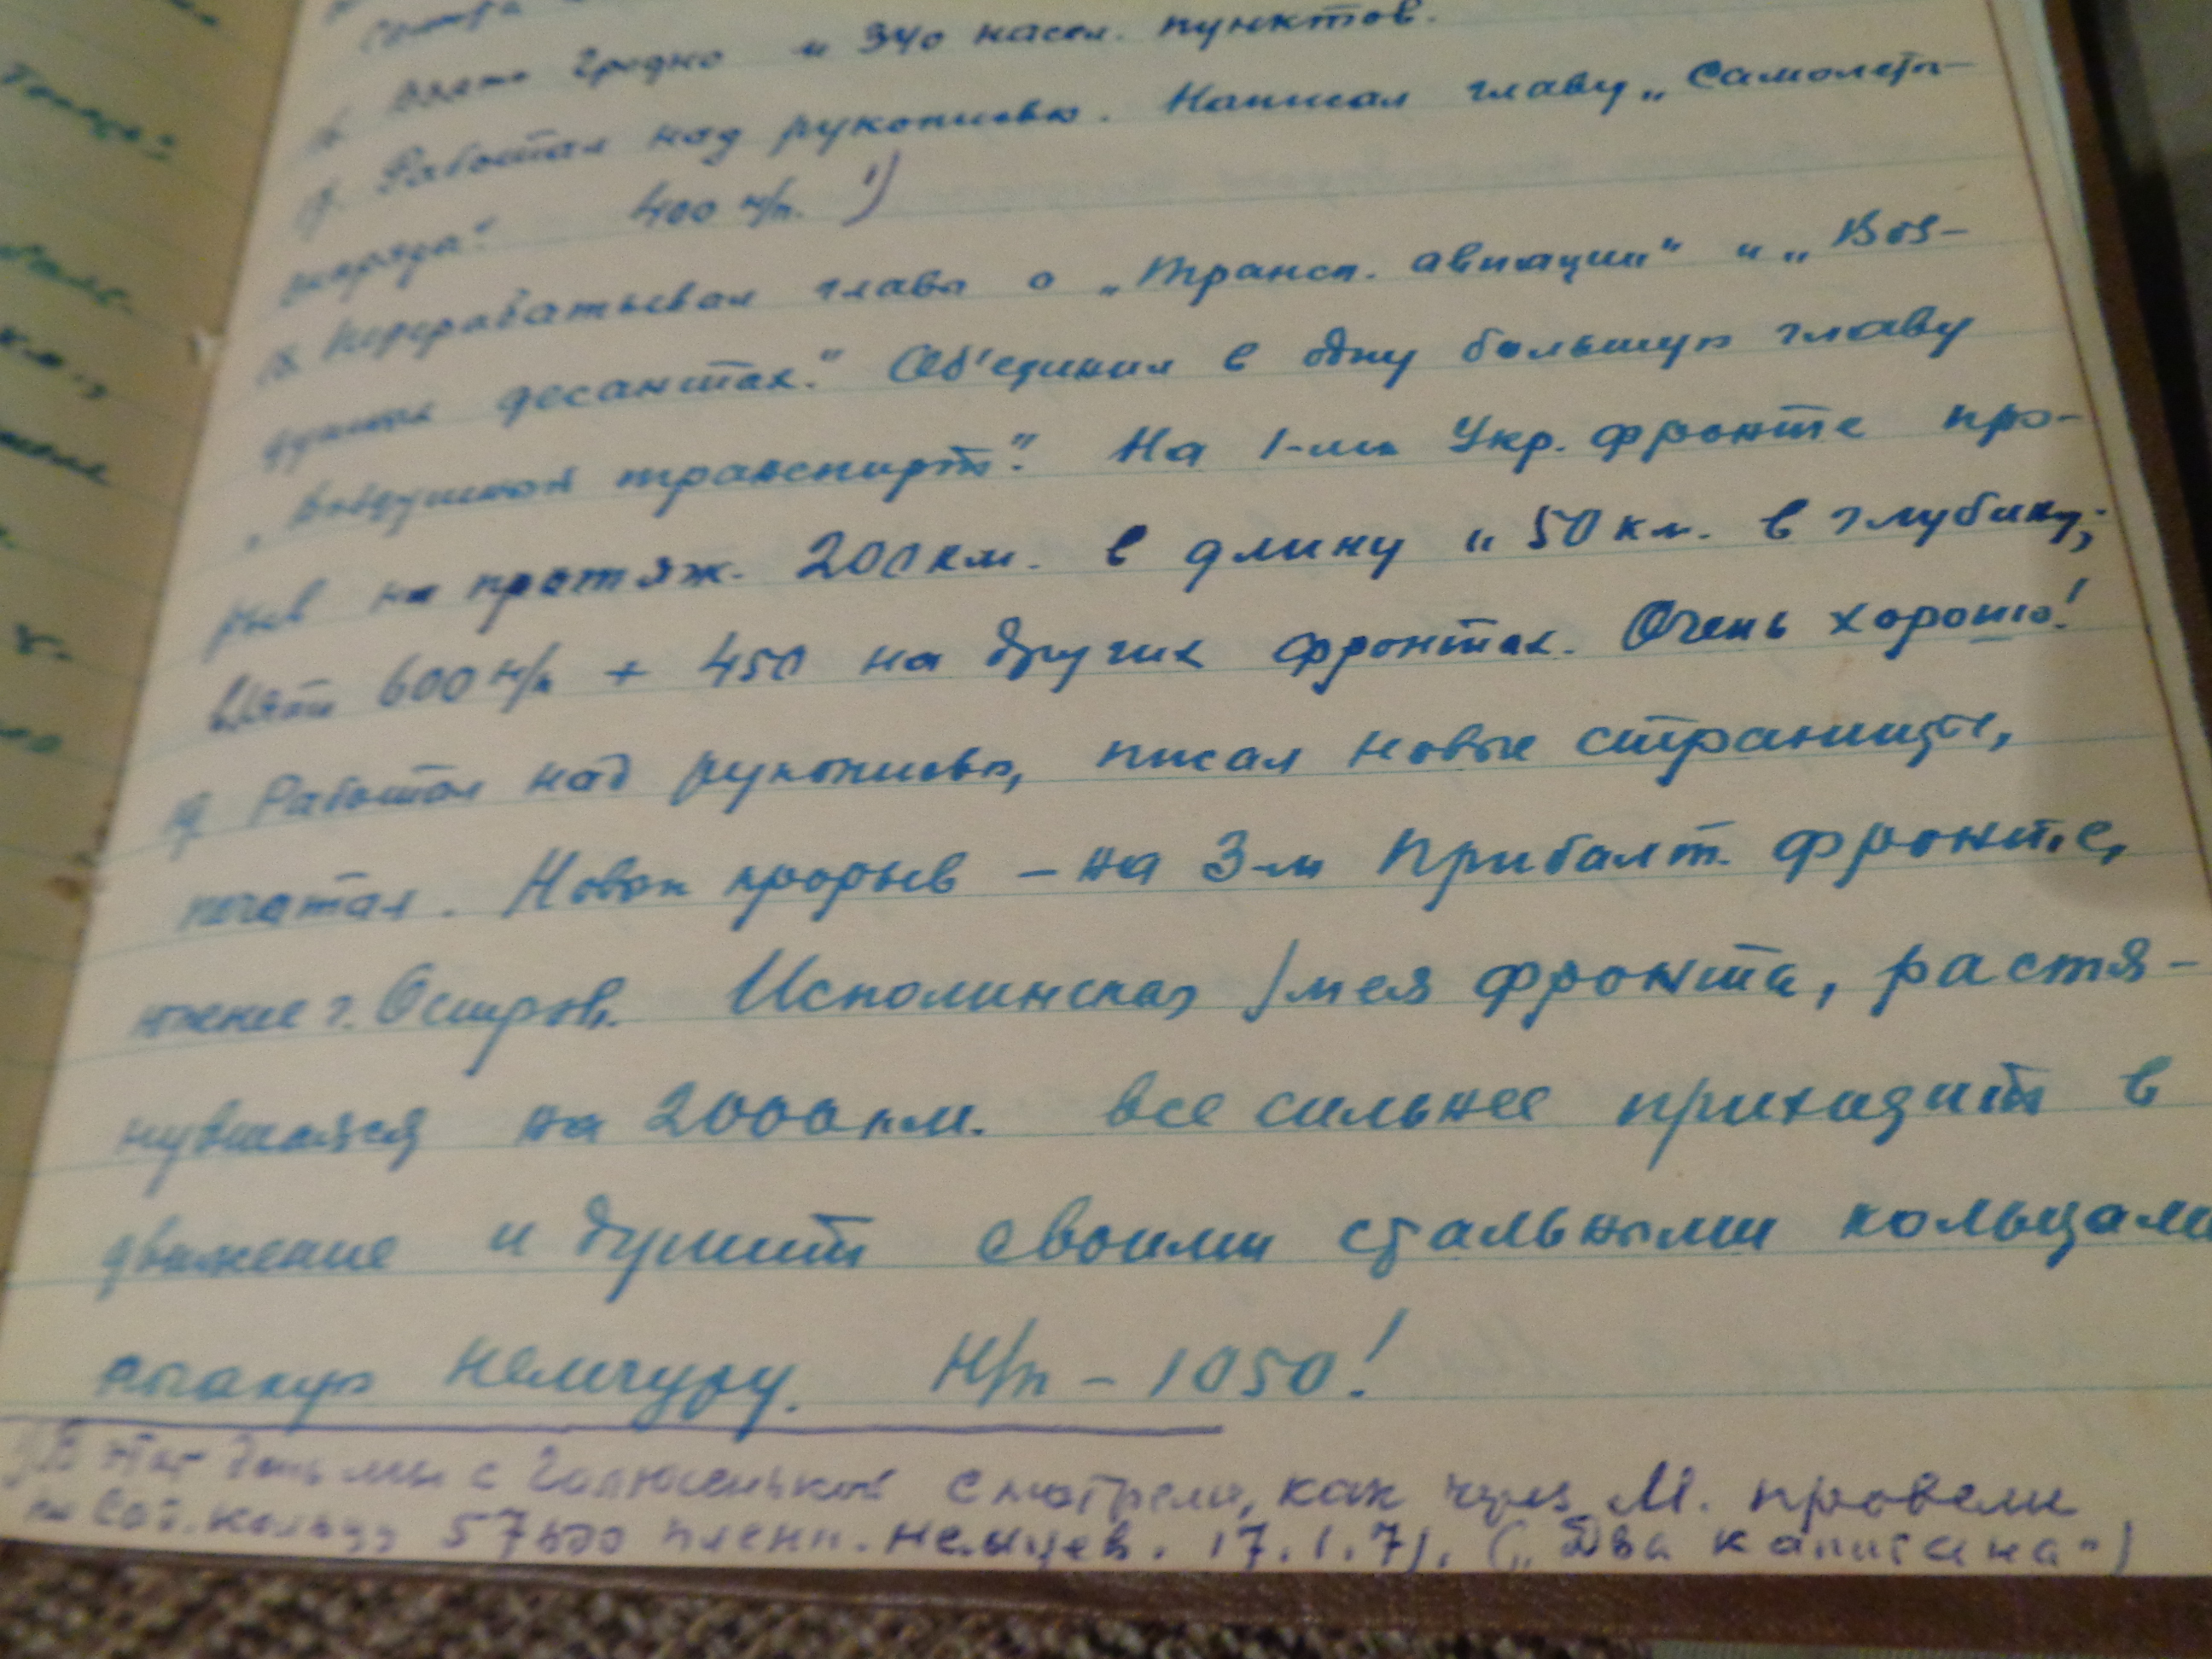 16. Взято Гродно и 340 насел. пунктов.
17. Работал над рукописью. Написал главу „Самолеты-
снаряды“. 400 н/п. 1)
18. Перерабатывал главы о „Трансп. авиации“ и „Воз-
душных десантах“. Об'единил в одну большую главу
„Воздушный транспорт“. На 1-м Укр. фронте про-
рыв на протяж. 200 км. в длину и 50 км. в глубину;
взято 600 н/п + 450 на других фронтах. Очень хорошо!
19. Работал над рукописью, писал новые страницы,
печатал. Новый прорыв – на 3-м Прибалт. фронте,
г. Остров. Исполинская змея фронта, растя-
нувшаяся на 2000 км. все сильнее приходит в
движение и душит своими стальными кольцами
немчуру. Н/п – 1050!
1) В этот день мы с Галюсенькой смотрели, как через М. провели
по Сад. кольцу 57600 пленн. немцев. 17.1.71. („Два капитана“)